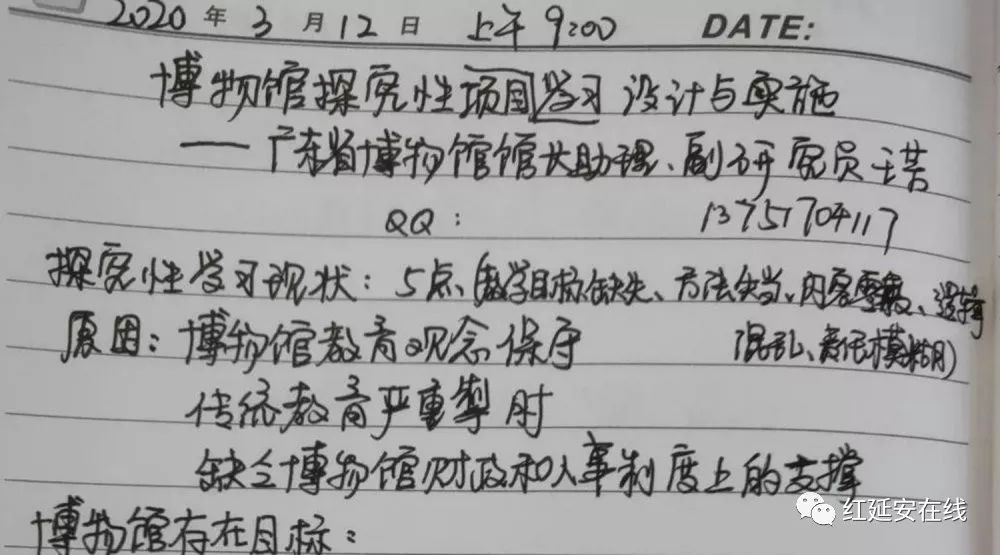 2020年3月12日 上午9:00 DATE:
博物馆探究性项目学习设计与实施
——广东省博物馆馆长助理、副研究员王芳
QQ: 13751704117
探究性学习现状：5点、(教学目标缺失、方法失当、内容零散、逻辑
混乱、责任模糊)
原因：博物馆教育观念保守
传统教育严重掣肘
缺乏博物馆财政和人事制度上的支撑
博物馆存在目标：
红延安在线